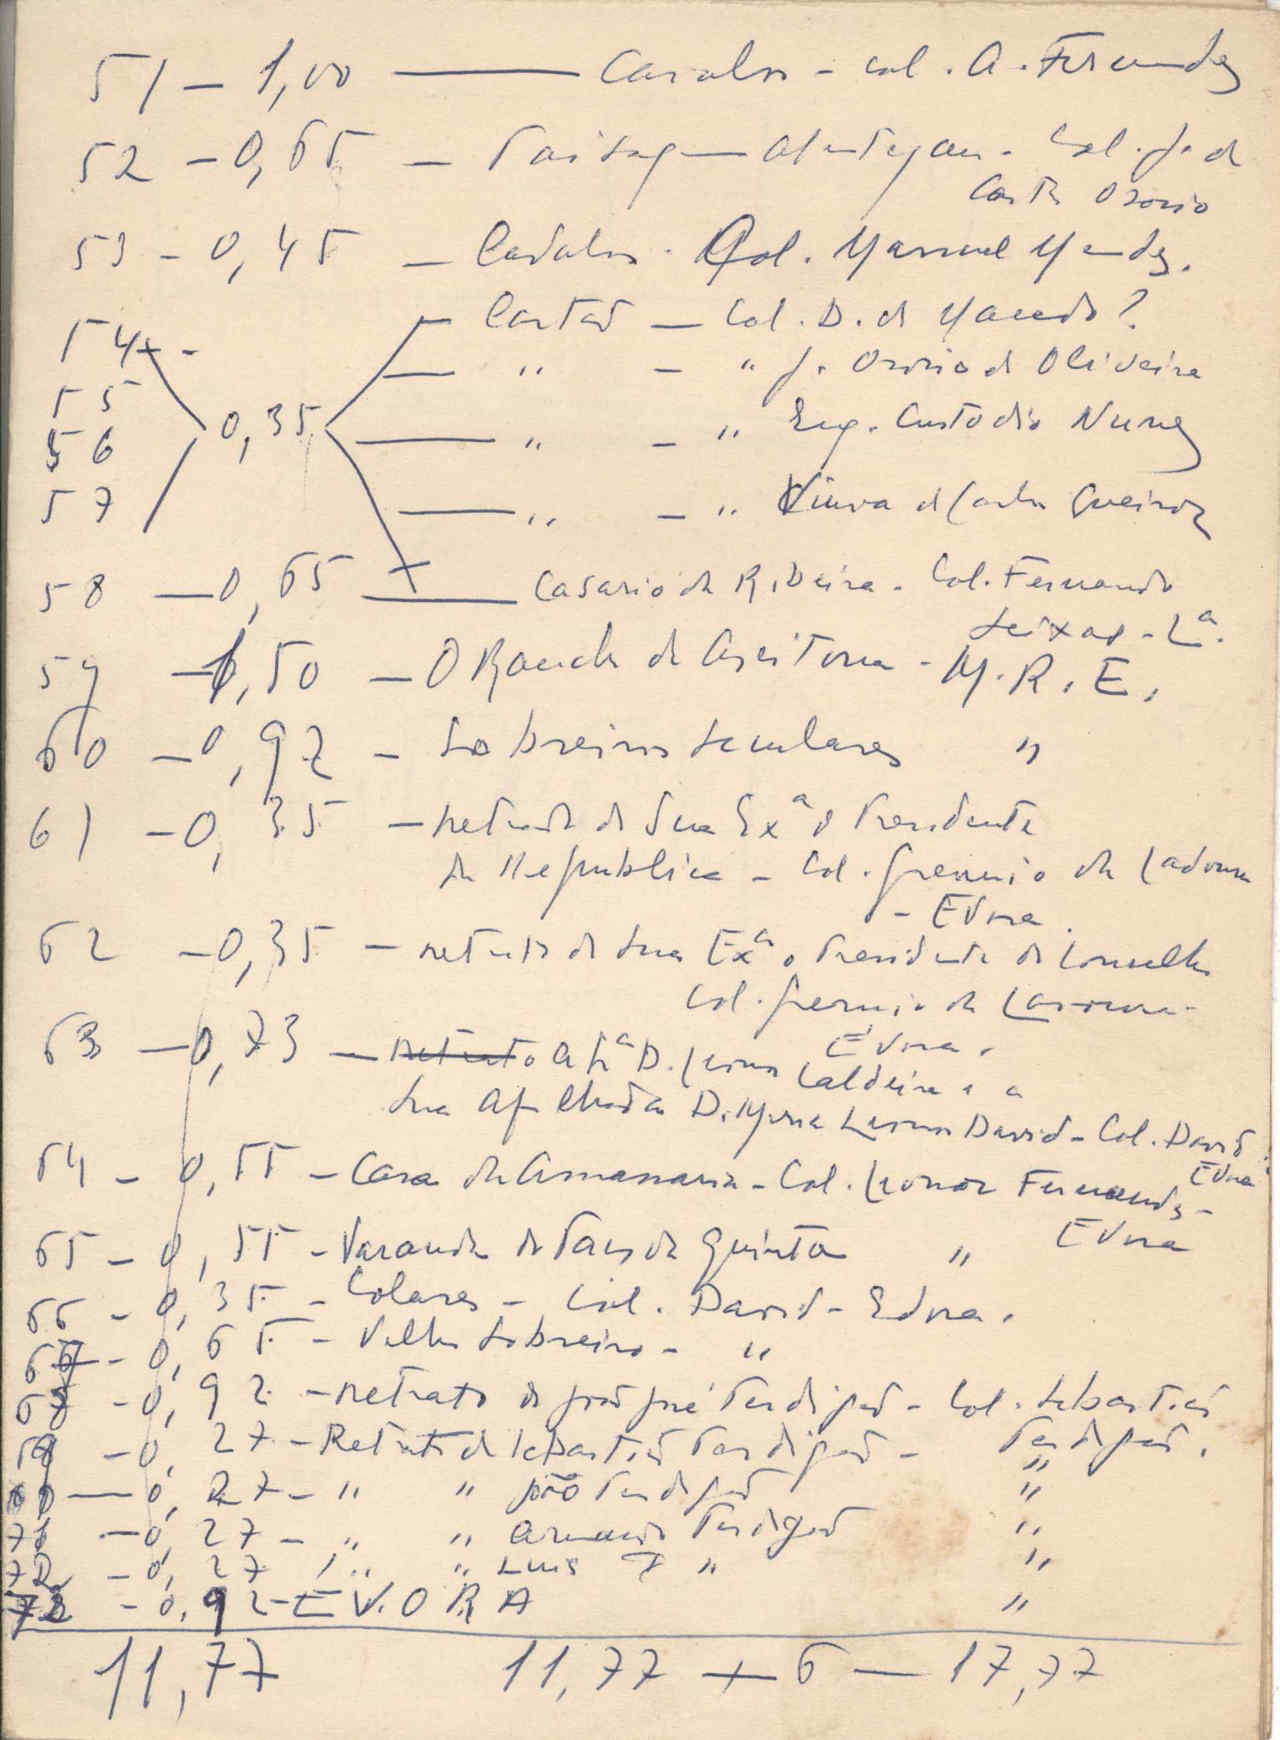 51 — 1,00 — Cavalos - Col. A. Fernandes
52 — 0,65 — Paisagem Alentejana - Col. J. de
Castro Osorio
53 — 0,45 — Cavalos - Col. Manuel Mendes.
54 - Cartão — Col. D. de Macedo?
55 — " — " J. Osorio de Oliveira
56 0,35 — " — " Eng. Custodio Nunes
57 — " — " Viuva de Carlos Queiroz
58 — 0,65 — Casario da Ribeira - Col. Fernando
Seixas - Lª.
59 — 1,50 — O Rancho da Azeitona - M.R.E.
60 — 0,92 — Sobreiros Seculares "
61 — 0,35 — retrato de Sua Exª o Presidente
da Republica - Col. Gremio da Lavoura
- Evora.
62 — 0,35 — retrato de Sua Exª o Presidente do Conselho
Col. Gremio da Lavoura -
Evora.
63 — 0,73 — retrato a Srª D. Leonor Caldeira e a
Sua Afilhada D. Maria Leonor David - Col. David
Evora
64 — 0,55 — Casa da Amassaria - Col. Leonor Fernandes -
Evora
65 — 0,55 — Varanda do Paço da Quinta "
66 — 0,35 — Colares - Col. David - Evora.
67 - 0,65 - Velho Sobreiro - "
68 - 0,92 - retrato de José Perdigão - Col. Sebastião
Perdigão.
69 - 0,27 - Retrato de Sebastião Perdigão - "
70 — 0,27 - " " João Perdigão "
71 — 0,27 - " " Armando Perdigão "
72 - 0,27 " " Luis F " "
73 - 0,92 - EVORA "
11,77 11,77 + 6 — 17,77